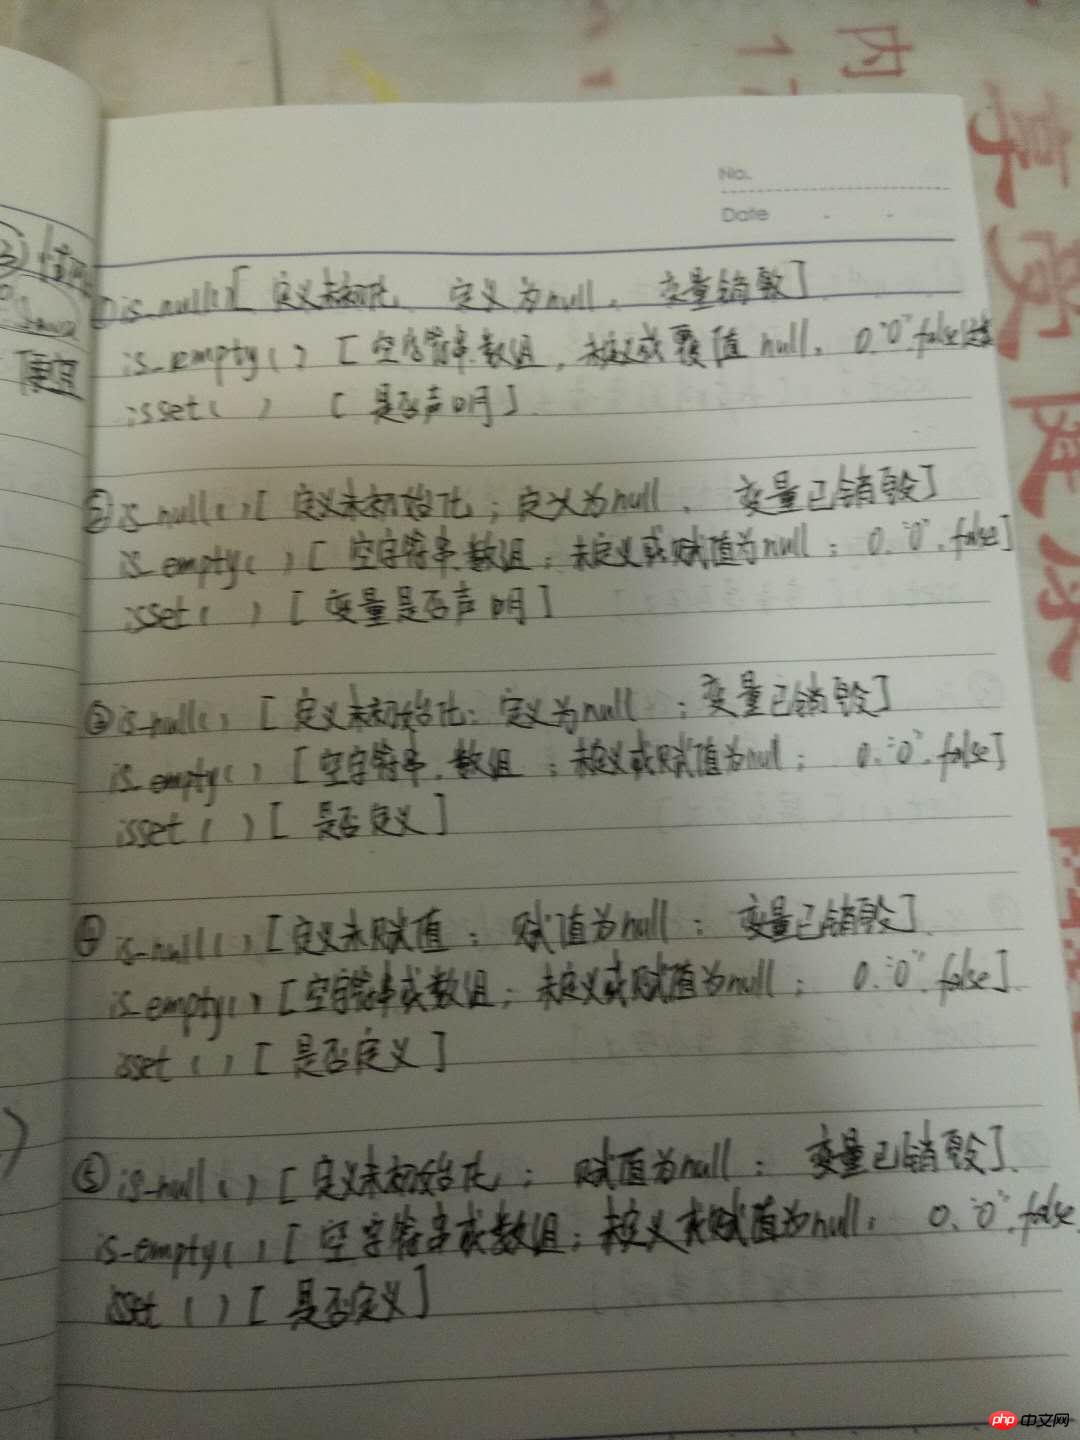 No.
Date
①is_null()[ 定义未初化、 定义为null、 变量销毁]
is_empty() [空字符串.数组,未定义或 值 null、0."0".false
isset( ) [是否声明]
②is_null()[ 定义未初始化;定义为null 、 变量已销毁]
is_empty( )[空字符串.数组;未定义或赋值为null; 0."0".false]
isset( ) [变量是否声明]
③is_null() [定义未初始化;定义为null ;变量已销毁]
is_empty() [空字符串.数组 ;未定义或赋值为null; 0."0".false]
isset( )[ 是否定义]
④is_null()[定义未赋值; 赋值为null; 变量已销毁]
is_empty()[空字符串或数组;未定义或赋值为null; 0."0".false]
isset ( )[ 是否定义]
⑤is_null()[定义未初始化; 赋值为null; 变量已销毁].
is_empty()[空字符串或数组;未定义或赋值为null; 0."0".false
isset ( )[是否定义]
便宜
内
康
php 中文网